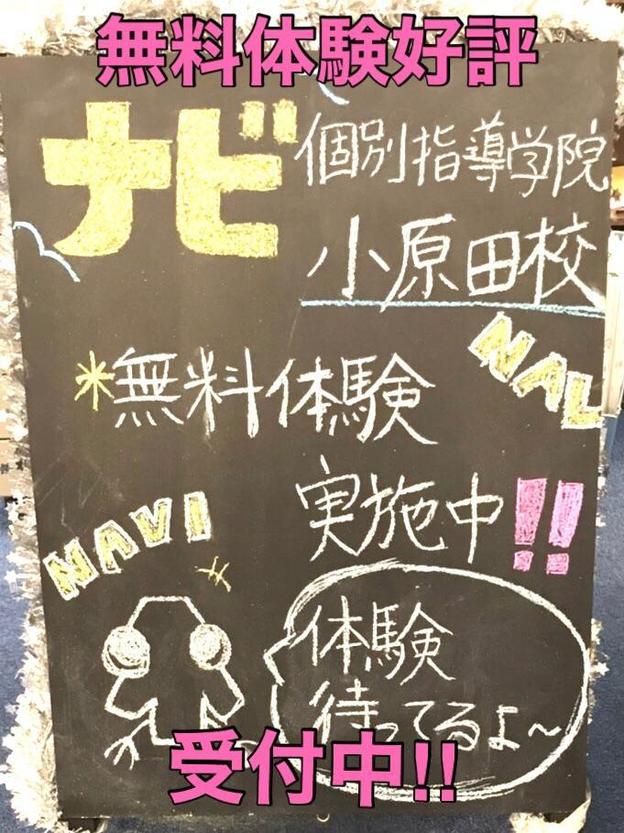 無料体験好評
ナビ個別指導学院
小原田校
NAL
*無料体験
実施中!!
NAVI
体験
待ってるよ~
受付中!!